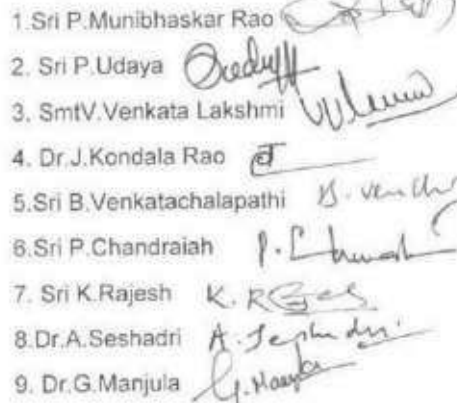 1.Sri P.Munibhaskar Rao
2. Sri P.Udaya
3. SmtV.Venkata Lakshmi
4. Dr.J.Kondala Rao
5.Sri B.Venkatachalapathi B.
6.Sri P.Chandraiah P.
7. Sri K.Rajesh K.
8.Dr.A.Seshadri A. Seshadri
9. Dr.G.Manjula G. Manjula